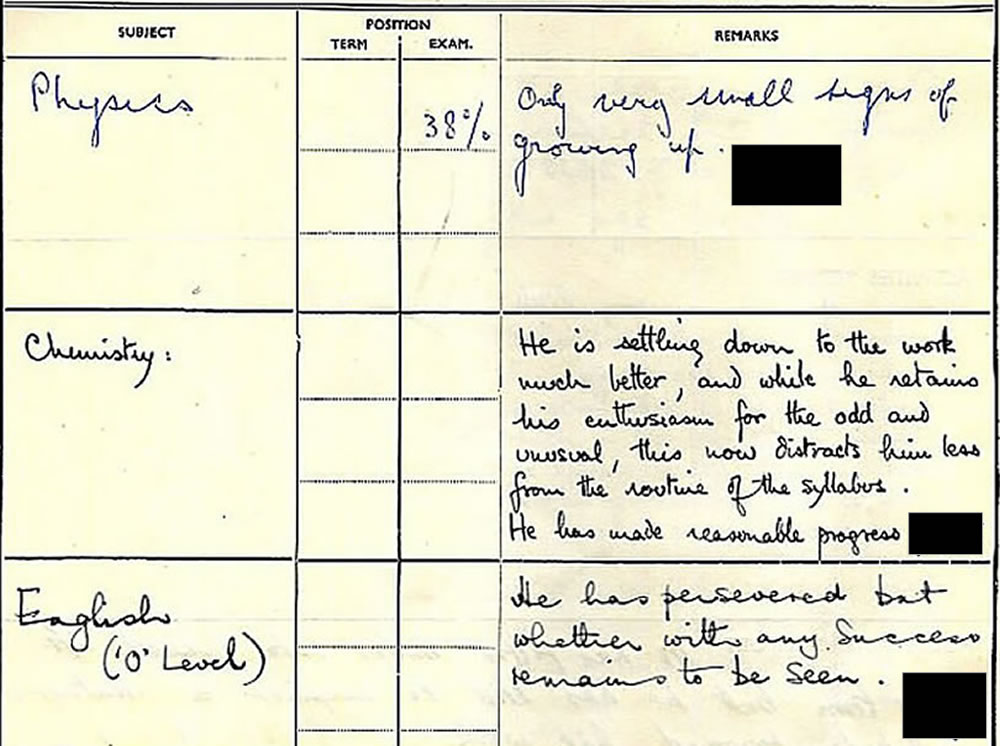 SUBJECT
POSITION
TERM
EXAM.
REMARKS
Physics
38%
Only very small signs of
growing up.
Chemistry:
He is settling down to the work
much better, and while he retains
his enthusiasm for the odd and
unusual, this now distracts him less
from the routine of the syllabus.
He has made reasonable progress
English
('O' Level)
He has persevered but
whether with any success
remains to be seen.